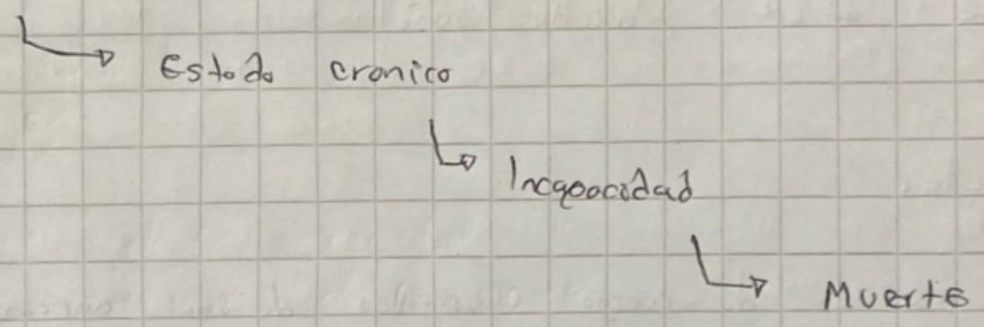 Estado cronico
Incapacidad
Muerte